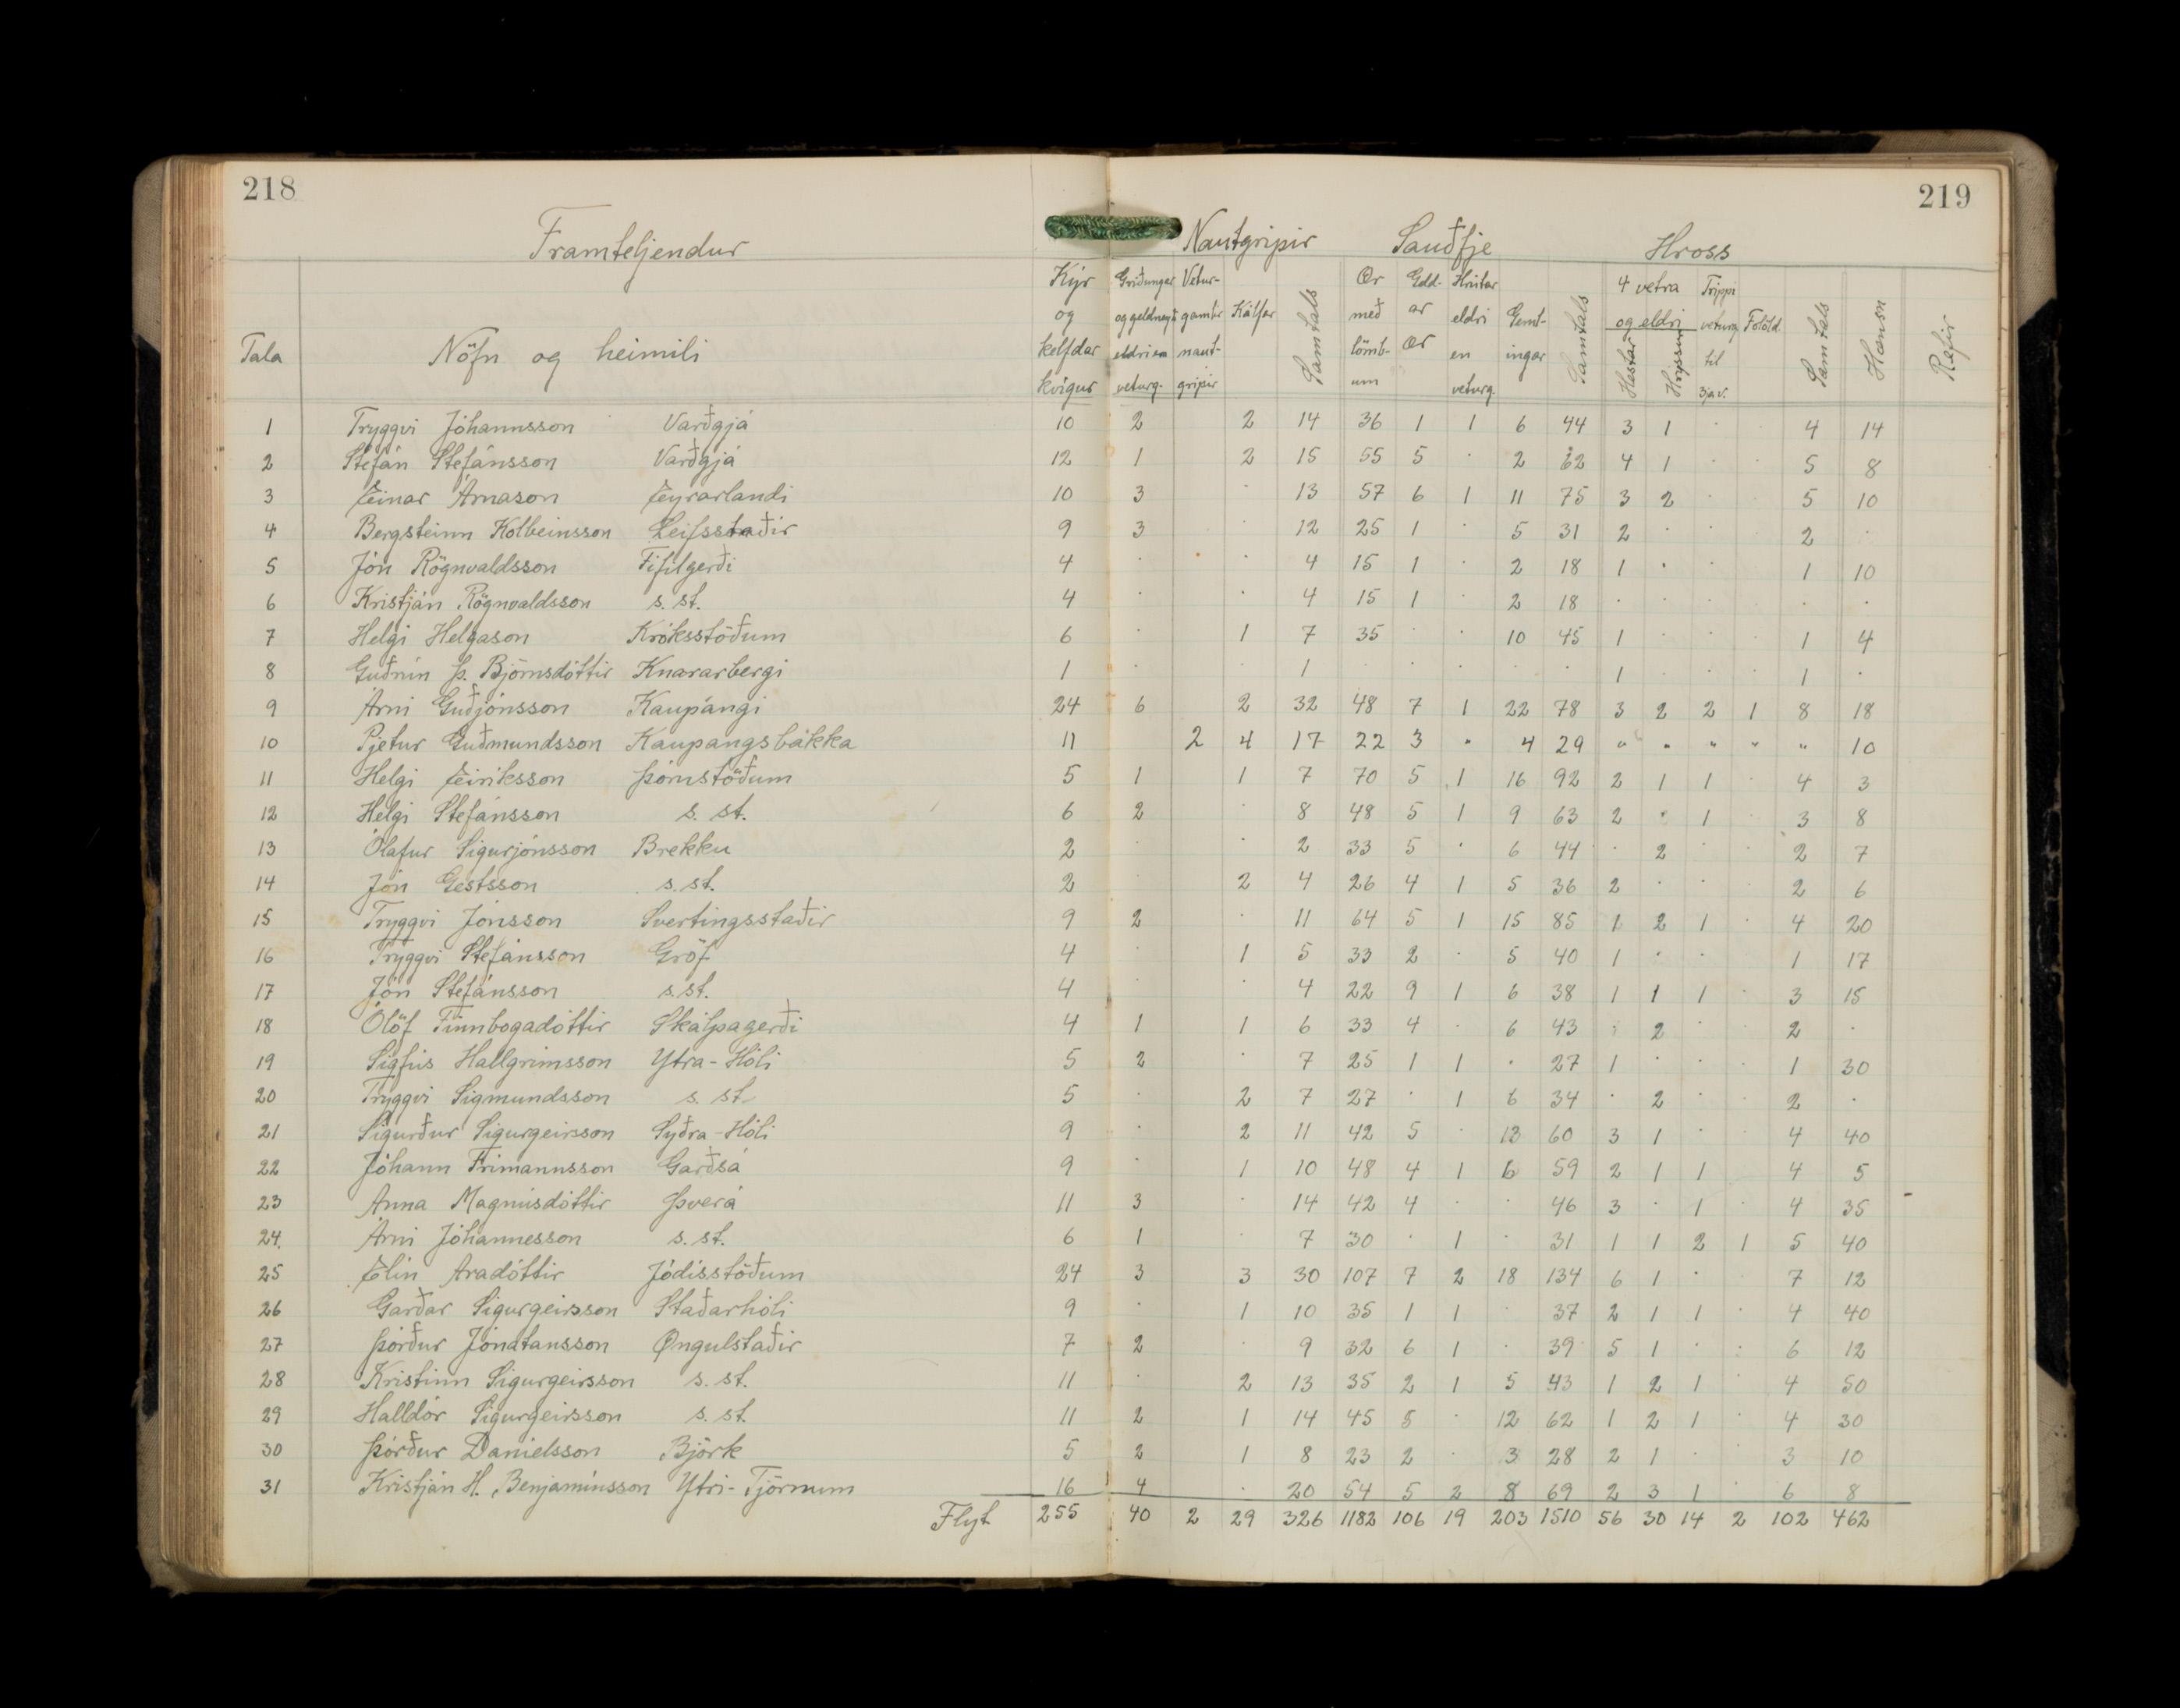 218
219
Framteljendur
Nautgripir Sauðfje Hross
Tala Nöfn og heimili Kýr og kelfdar kvígur Griðungar og geldneyti eldri en veturg. Vetur-gamlir naut-gripir Kálfar Samtals Ær með lömb-um Geld-ar ær Hrútar eldri en veturg. Geml-ingar Samtals 4 vetra og eldri Hestar Hryssur Trippi veturg. til 3ja v. Folöld Samtals Hænsn Refir
1 Tryggvi Jóhannsson Varðgjá 10 2 2 14 36 1 1 6 44 3 1 · · 4 14
2 Stefán Stefánsson Varðgjá 12 1 2 15 55 5 · 2 62 4 1 · · 5 8
3 Einar Árnason Eyrarlandi 10 3 · 13 57 6 1 11 75 3 2 · · 5 10
4 Bergsteinn Kolbeinsson Leifsstaðir 9 3 · 12 25 1 · 5 31 2 · · · 2 ·
5 Jón Rögnvaldsson Fífilgerði 4 · · · 4 15 1 · 2 18 1 · · 1 10
6 Kristján Rögnvaldsson s. st. 4 · · 4 15 1 · 2 18 · · · · · ·
7 Helgi Helgason Króksstöðum 6 · 1 7 35 · · 10 45 1 · · · 1 4
8 Guðrún Þ. Björnsdóttir Knararbergi 1 · · 1 · · · · · 1 · · · 1 ·
9 Árni Guðjónsson Kaupangi 24 6 2 32 48 7 1 22 78 3 2 2 1 8 18
10 Pjetur Guðmundsson Kaupangsbakka 11 2 4 17 22 3 " 4 29 " " " " " 10
11 Helgi Eiríksson Þórustöðum 5 1 1 7 70 5 1 16 92 2 1 1 · 4 3
12 Helgi Stefánsson s. st. 6 2 · 8 48 5 1 9 63 2 · 1 · 3 8
13 Ólafur Sigurjónsson Brekku 2 · · 2 33 5 · 6 44 · 2 · · 2 7
14 Jón Gestsson s. st. 2 · 2 4 26 4 1 5 36 2 · · · 2 6
15 Tryggvi Jónsson Svertingsstaðir 9 2 · 11 64 5 1 15 85 1 2 1 · 4 20
16 Tryggvi Stefánsson Gröf 4 · 1 5 33 2 · 5 40 1 · · 1 17
17 Jón Stefánsson s. st. 4 · · 4 22 9 1 6 38 1 1 1 · 3 15
18 Ólöf Finnbogadóttir Skálpagerði 4 1 1 6 33 4 · 6 43 · 2 · · 2 ·
19 Sigfús Hallgrímsson Ytra-Hóli 5 2 · 7 25 1 1 · 27 1 · · · 1 30
20 Tryggvi Sigmundsson s. st. 5 · 2 7 27 · 1 6 34 · 2 · · 2 ·
21 Sigurður Sigurgeirsson Syðra-Hóli 9 · 2 11 42 5 · 13 60 3 1 · · 4 40
22 Jóhann Frímannsson Garðsá 9 · 1 10 48 4 1 6 59 2 1 1 4 5
23 Anna Magnúsdóttir Þverá 11 3 · 14 42 4 · · 46 3 · 1 · 4 35
24. Árni Jóhannesson s. st. 6 1 · 7 30 · 1 · 31 1 1 2 1 5 40
25 Elín Aradóttir Jódísstöðum 24 3 3 30 107 7 2 18 134 6 1 · 7 12
26 Garðar Sigurgeirsson Staðarhóli 9 · 1 10 35 1 1 · 37 2 1 1 · 4 40
27 Þórður Jónatansson Öngulstaðir 7 2 · 9 32 6 1 · 39 5 1 · · 6 12
28 Kristinn Sigurgeirsson s. st. 11 · 2 13 35 2 1 5 43 1 2 1 · 4 50
29 Halldór Sigurgeirsson s. st. 11 2 1 14 45 5 · 12 62 1 2 1 · 4 30
30 Þórður Daníelsson Björk 5 2 1 8 23 2 · 3 28 2 1 · · 3 10
31 Kristján H. Benjamínsson Ytri-Tjörnum 16 4 · 20 54 5 2 8 69 2 3 1 · 6 8
Flyt 255 40 2 29 326 1182 106 19 203 1510 56 30 14 2 102 462